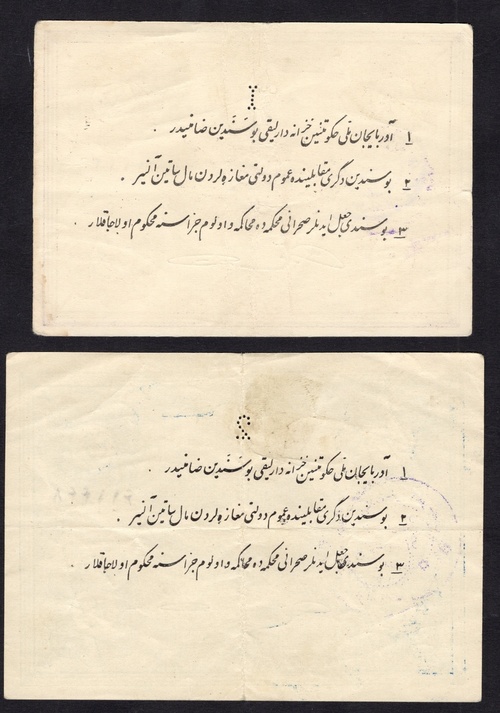 I
١ آذربایجان ملی حکومتینین خزانه دارلیقی بو سندین ضامنیدر .
٢ بو سندین دگری مقابلینده عموم دولتی مغازه لردن مال ساتین آلنیر .
٣ بو سندی جعل ایدنلر صحرائی محکمه ده محاکمه و اولوم جزاسنه محکوم اولاجاقلار .
2
١ آذربایجان ملی حکومتینین خزانه دارلیقی بو سندین ضامنیدر .
٢ بو سندین دگری مقابلینده عموم دولتی مغازه لردن مال ساتین آلنیر .
٣ بو سندی جعل ایدنلر صحرائی محکمه ده محاکمه و اولوم جزاسنه محکوم اولاجاقلار .